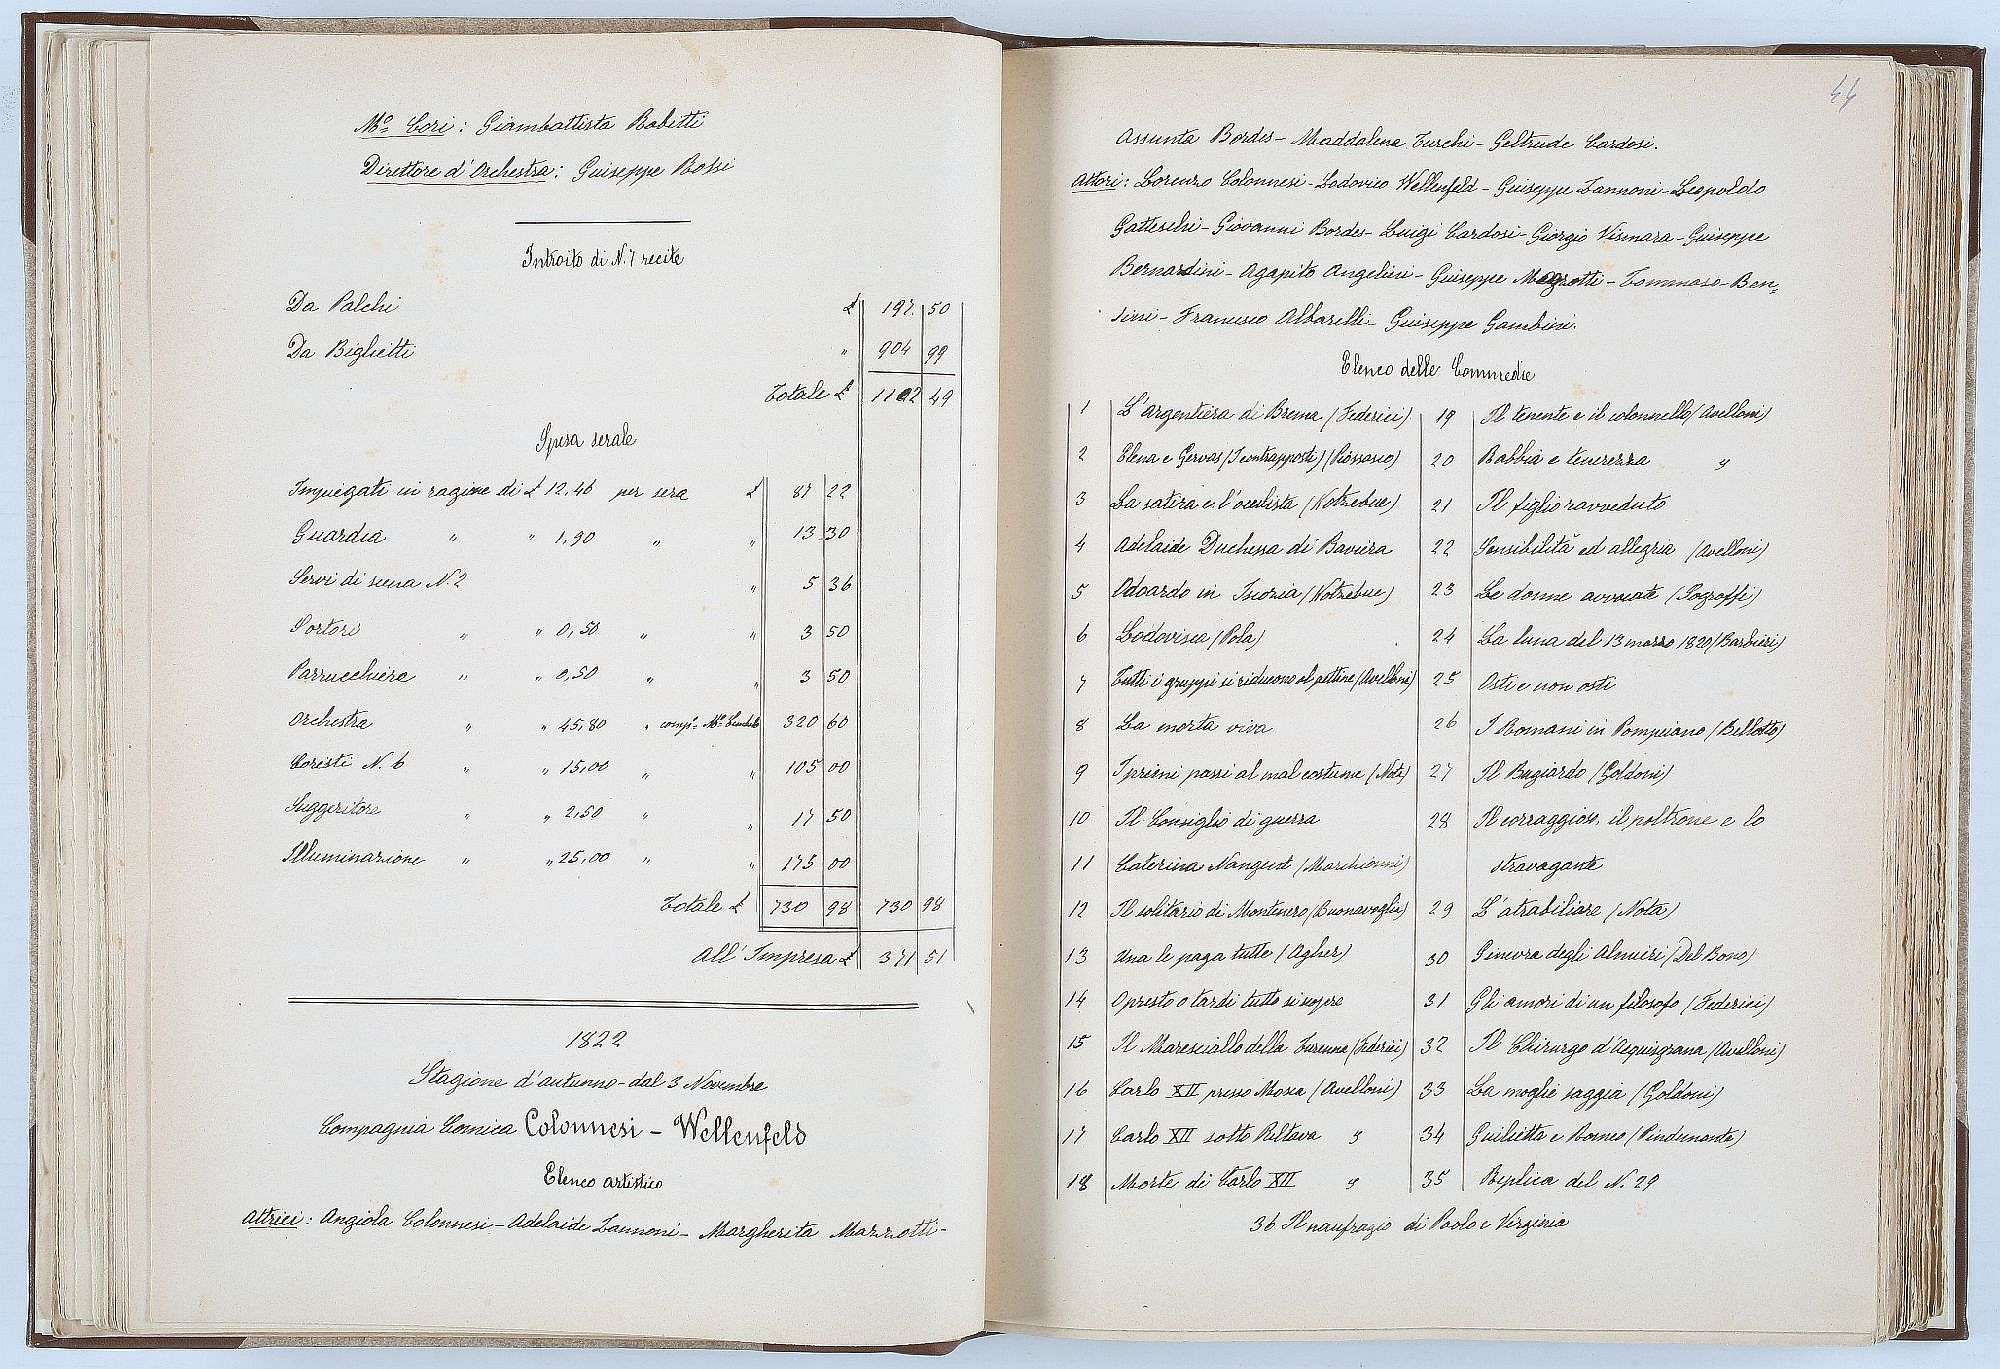 Mo. Cori: Giambattista Rabitti
Direttore d'Orchestra: Giuseppe Rossi
Introito di N. 7 recite
Da Palchi £ 197 50
Da Biglietti " 904 99
Totale £ 1102 49
Spesa serale
Impiegati in ragione di £ 12,46 per sera £ 87 22
Guardia " " 1,90 " " 13 30
Servi di scena N. 2 " 5 36
Portori " " 0,50 " " 3 50
Parrucchiere " " 0,50 " " 3 50
Orchestra " " 45,80 " comp.o Mo. 320 60
Coristi N. 6 " " 15,00 " " 105 00
Suggeritore " " 2,50 " " 17 50
Illuminazione " " 25,00 " " 175 00
Totale £ 730 98 730 98
All' Impresa £ 371 51
1822
Stagione d'autunno - dal 3 Novembre
Compagnia Comica Colonnesi - Wellenfeld
Elenco artistico
Attrici: Angiola Colonnesi - Adelaide Zannoni - Margherita Mazzotti -
44
Assunta Bordes - Maddalena Turchi - Geltrude Cardosi.
Attori: Lorenzo Colonnesi - Lodovico Wellenfeld - Giuseppe Zannoni - Leopoldo
Gatteschi - Giovanni Bordes - Luigi Cardosi - Giorgio Vismara - Giuseppe
Bernardini - Agapito Angelini - Giuseppe Magrotti - Tommaso Ben=
sini - Francesco Albarelli - Giuseppe Gambini.
Elenco delle Commedie
1 L'argentiera di Brema (Federici)
2 Elena e Gervas (I contrapposti) (Rossasco)
3 La satira e l'oculista (Kotzebue)
4 Adelaide Duchessa di Baviera
5 Odoardo in Iscozia (Kotzebue)
6 Lodovisca (Pola)
7 Tutti i gruppi si riducono al pettine (Avelloni)
8 La morta viva
9 I primi passi al mal costume (Nota)
10 Il Consiglio di guerra
11 Caterina Nangent (Marchionni)
12 Il solitario di Montenero (Buonavoglia)
13 Una le paga tutte (Agher)
14 O presto o tardi tutto si sopre
15 Il Maresciallo della Turenna (Federici)
16 Carlo XII presso Mosca (Avelloni)
17 Carlo XII sotto Pultava "
18 Morte di Carlo XII "
19 Il tenente e il colonnello (Avelloni)
20 Rabbia e tenerezza "
21 Il figlio ravveduto
22 Sensibilità ed allegria (Avelloni)
23 Le donne avvocate (Sograffi)
24 La luna del 13 marzo 1820 (Barbieri)
25 Osti e non osti
26 I Romani in Pompeiano (Bellotto)
27 Il Bugiardo (Goldoni)
28 Il corraggioso, il poltrone e lo
stravagante
29 L'atrabiliare (Nota)
30 Ginevra degli Almieri (Del Bono)
31 Gli amori di un filosofo (Federici)
32 Il Chirurgo d'Acquisgrana (Avelloni)
33 La moglie saggia (Goldoni)
34 Giulietta e Romeo (Pindemonte)
35 Replica del N. 29
36 Il naufragio di Paolo e Virginia